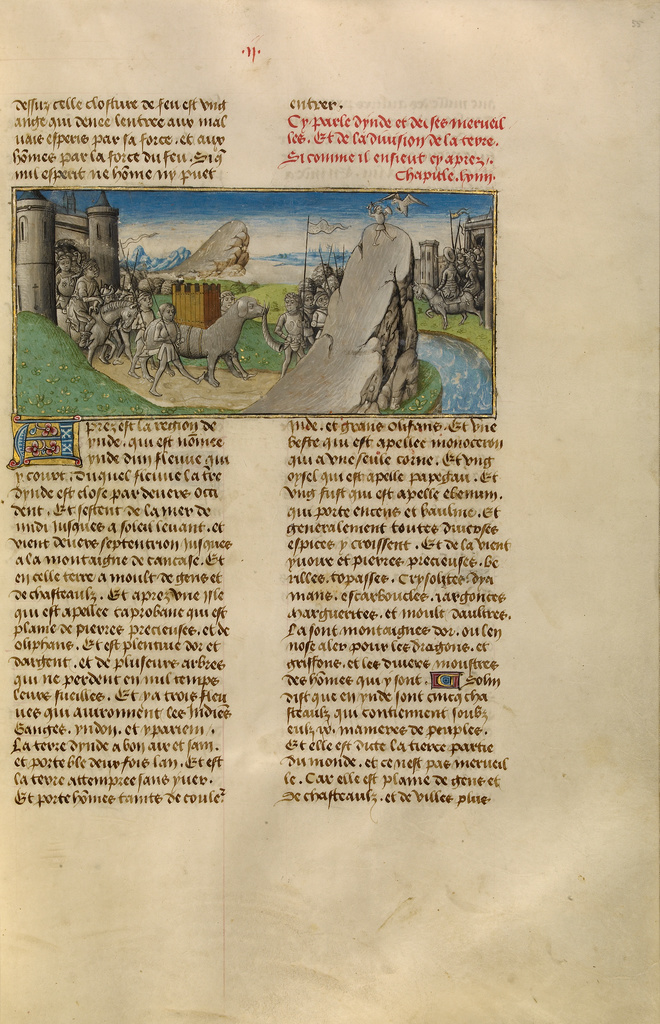 .II.
dessus celle closture de feu est vng
ange qui denee lentree aux mal
uais esperis par sa force. et aux
hõmes par la force du feu. Si q̃
nul esperit ne hõme ny puet
entrer.
Cy parle dynde et de ses merueil
les. Et de la diuision de la terre.
Si comme il ensieut cy aprez.
Chapitle. lviiij.
Aprez est la region de
ynde. qui est nõmee
ynde dun fleuue qui
y court. Duquel fleuue la tr̃e
dynde est close par deuers occi
dent. Et sestent de la mer de
midi jusques a soleil leuant. et
vient deuers septentrion jusques
a la montaigne de caucase. Et
en celle terre a moult de gens et
de chasteaulz. Et aprez vne jsle
qui est apellee caprobane qui est
plaine de pierres precieuses. et de
oliphans. Et est plentiue dor et
dargent. et de pluseurs arbres
qui ne perdent en nul temps
leurs fueilles. Et y a trois fleu
ues qui auironnent les Indies
Ganges. yndon. et ypariem.
La terre dynde a bon air et sain.
et porte ble deux fois lan. Et est
la terre attempree sans yuer.
Et porte hõmes tains de coule᷑
jnde. et grans olifans. Et vne
beste qui est apellee monoceron
qui a vne seule corne. Et vng
oysel qui est apelle papegau. Et
vng fust qui est apelle ebenum.
qui porte encens et baulme. Et
generalement toutes diuerses
espices y croissent. Et de la vient
yuoire et pierres precieuses. be
rilles. topasses. Crysolites. dya
mans. escarboucles. jargonces
marguerites. et moult daultres.
La sont montaignes dor. ou len
nose aler pour les dragons. et
griffons. et les diuers monstres
des hõmes qui y sont. Solin
dist que en ynde sont cincq cha
steaulz qui contiennent soubz
eulz manieres de peuples.
Et elle est dicte la tierce partie
du monde. et ce nest pas merueil
le. Car elle est plaine de gens et
de chasteaulz. et de villes plus